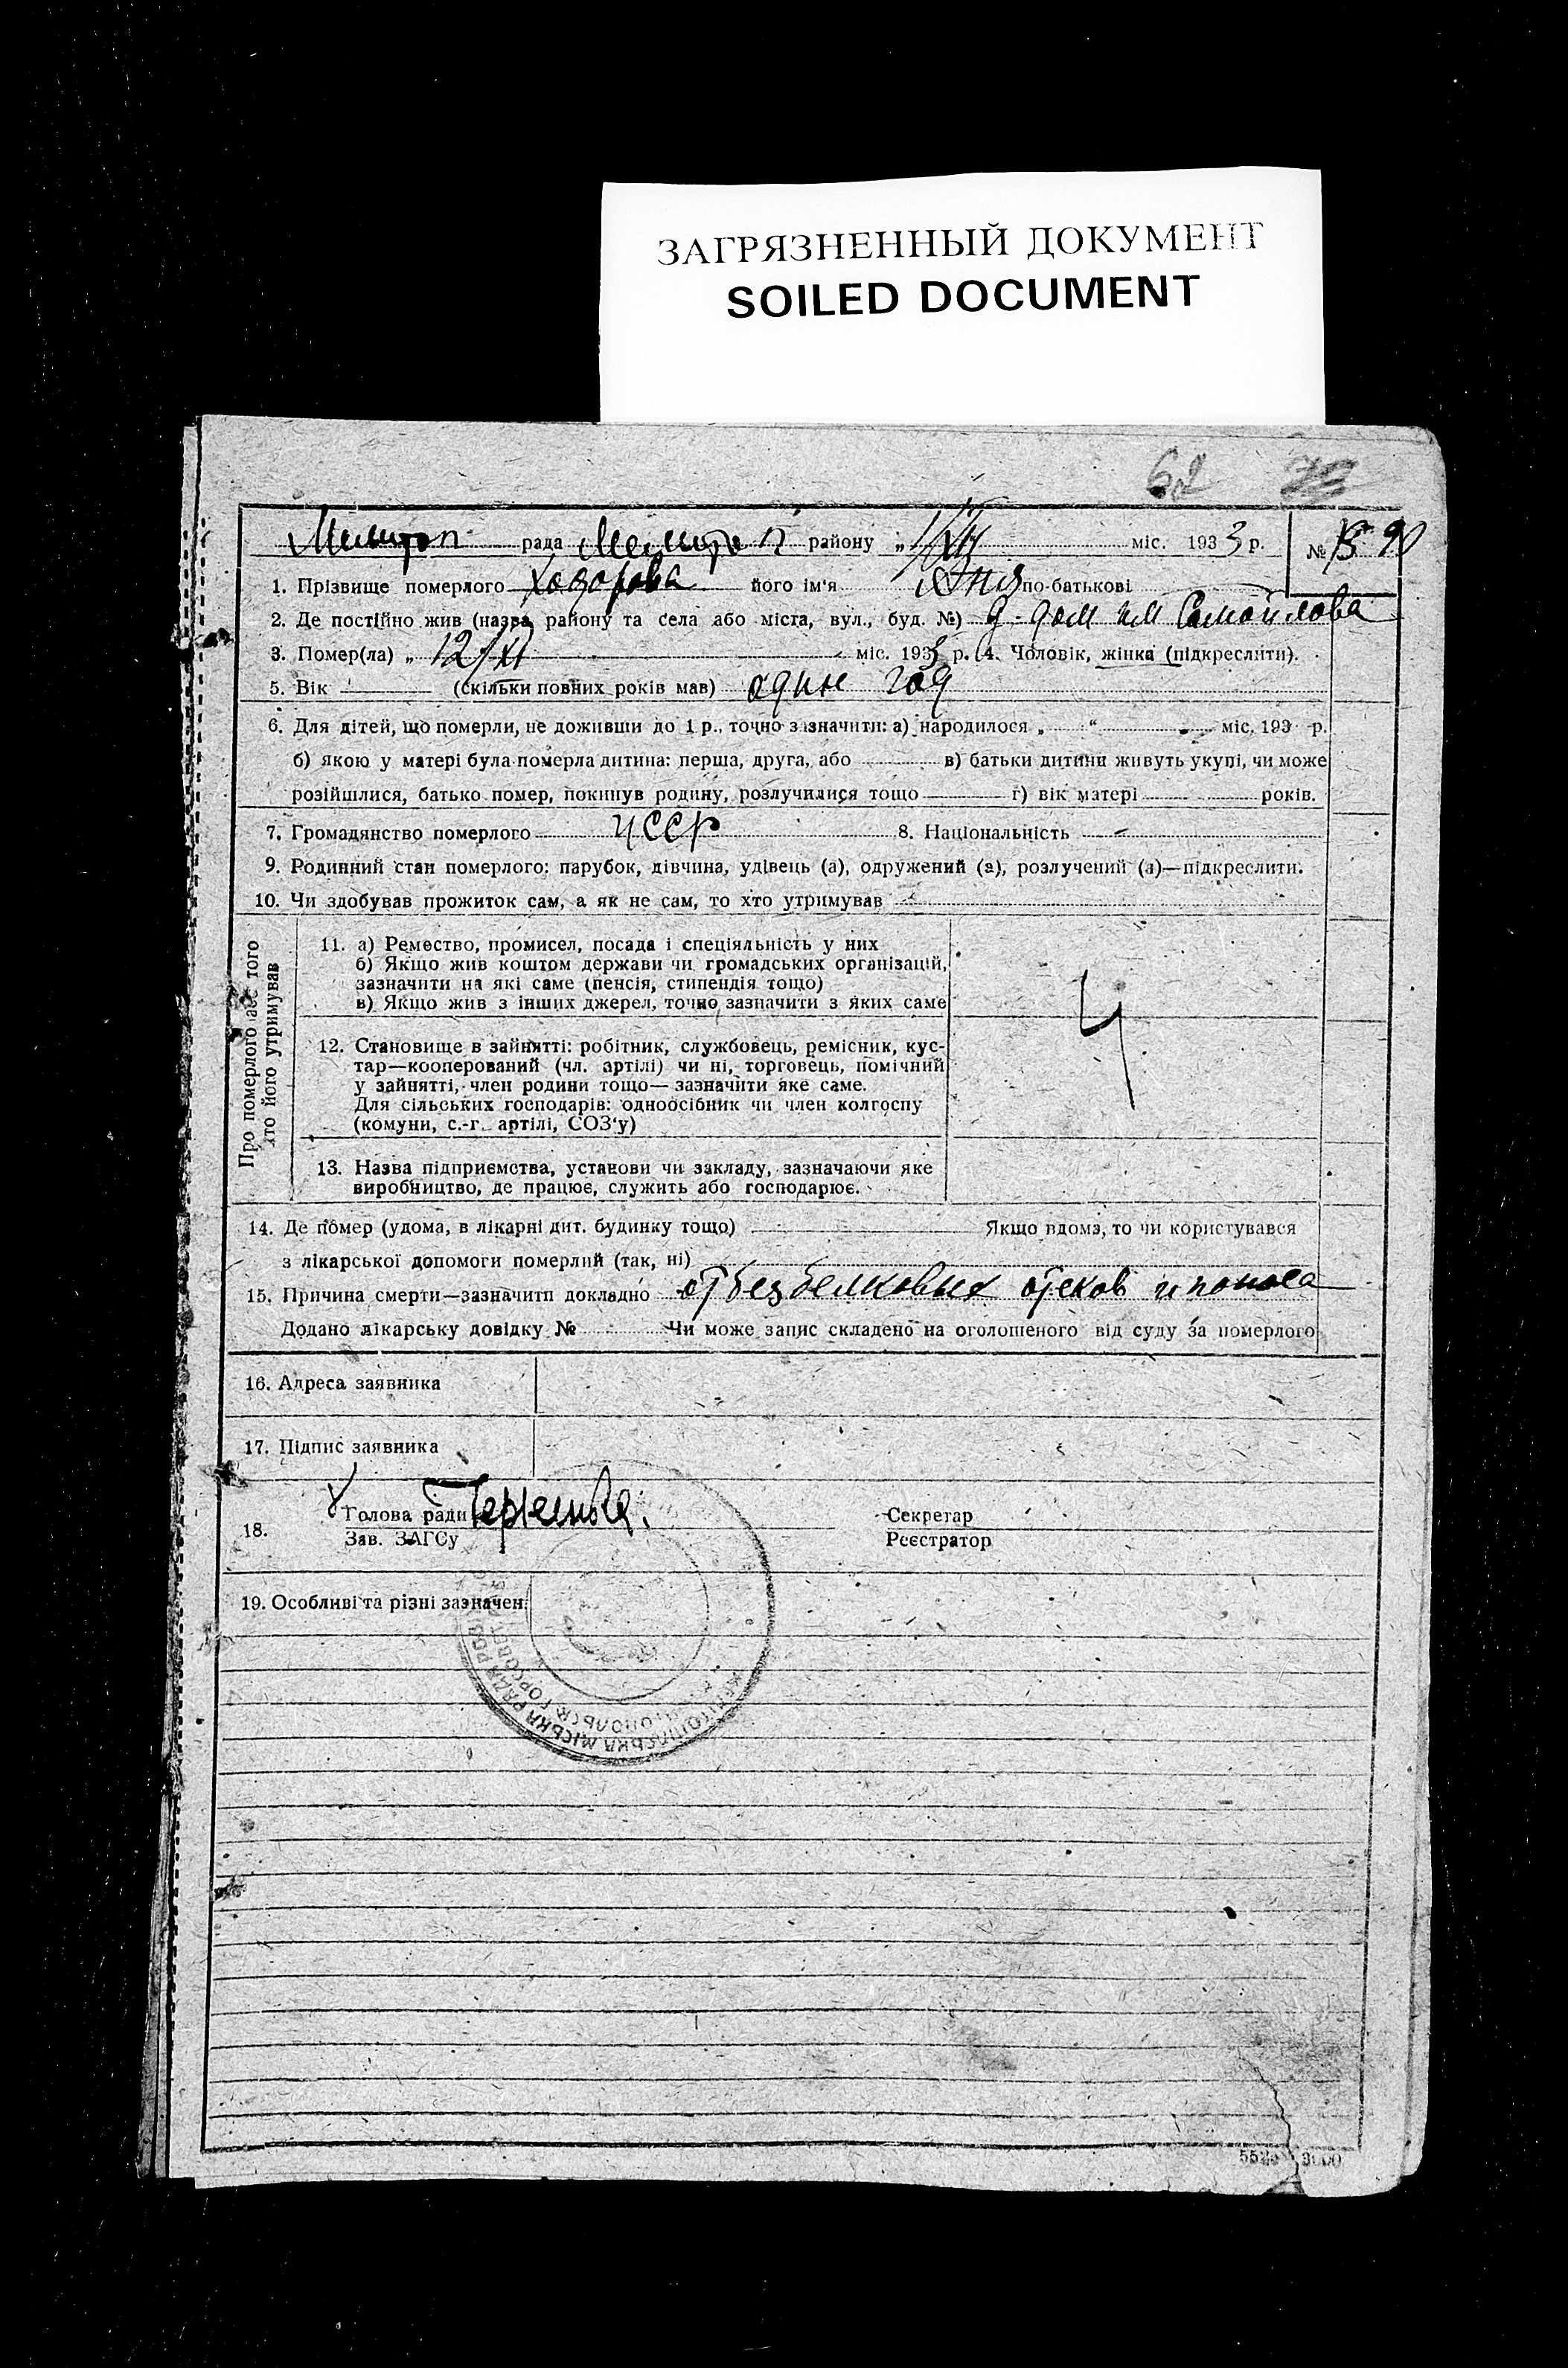 ЗАГРЯЗНЕННЫЙ ДОКУМЕНТ
SOILED DOCUMENT
62
Мелитоп рада Мелитоп району „ міс. 1933 р. № 1590
1. Прізвище померлого Ходорова його ім'я Аня по-батькові
2. Де постійно жив (назва району та села або міста, вул., буд. №) д-дом им Самойлова
3. Помер(ла) „ 12/XI міс. 1933 р. 4. Чоловік, жінка (підкреслити).
5. Вік (скільки повних років мав) один год
6. Для дітей, що померли, не доживши до 1 р., точно зазначити: а) народилося „ “ міс. 193 р.
б) якою у матері була померла дитина: перша, друга, або в) батьки дитини живуть укупі, чи може
розійшлися, батько помер, покинув родину, розлучилися тощо г) вік матері років.
7. Громадянство померлого УССР 8. Національність -
9. Родинний стан померлого: парубок, дівчина, удівець (а), одружений (а), розлучений (а)—підкреслити.
10. Чи здобував прожиток сам, а як не сам, то хто утримував
Про померлого або того
хто його утримував
11. а) Ремество, промисел, посада і спеціяльність у них
б) Якщо жив коштом держави чи громадських організацій,
зазначити на які саме (пенсія, стипендія тощо)
в) Якщо жив з інших джерел, точно зазначити з яких саме
12. Становище в зайнятті: робітник, службовець, ремісник, кус-
тар—кооперований (чл. артілі) чи ні, торговець, помічний
у зайнятті, член родини тощо— зазначити яке саме.
Для сільських господарів: одноосібник чи член колгоспу
(комуни, с.-г. артілі, СОЗ'у)
13. Назва підприємства, установи чи закладу, зазначаючи яке
виробництво, де працює, служить або господарює.
14. Де помер (удома, в лікарні дит. будинку тощо) Якщо вдома, то чи користувався
з лікарської допомоги померлий (так, ні)
15. Причина смерти—зазначити докладно от безбелковых отеков и поноса
Додано лікарську довідку № Чи може запис складено на оголошеного від суду за померлого
16. Адреса заявника
17. Підпис заявника
18. Голова ради Секретар
Зав. ЗАГСу Реєстратор
19. Особливі та різні зазначен.
МІСЬКА РАДА